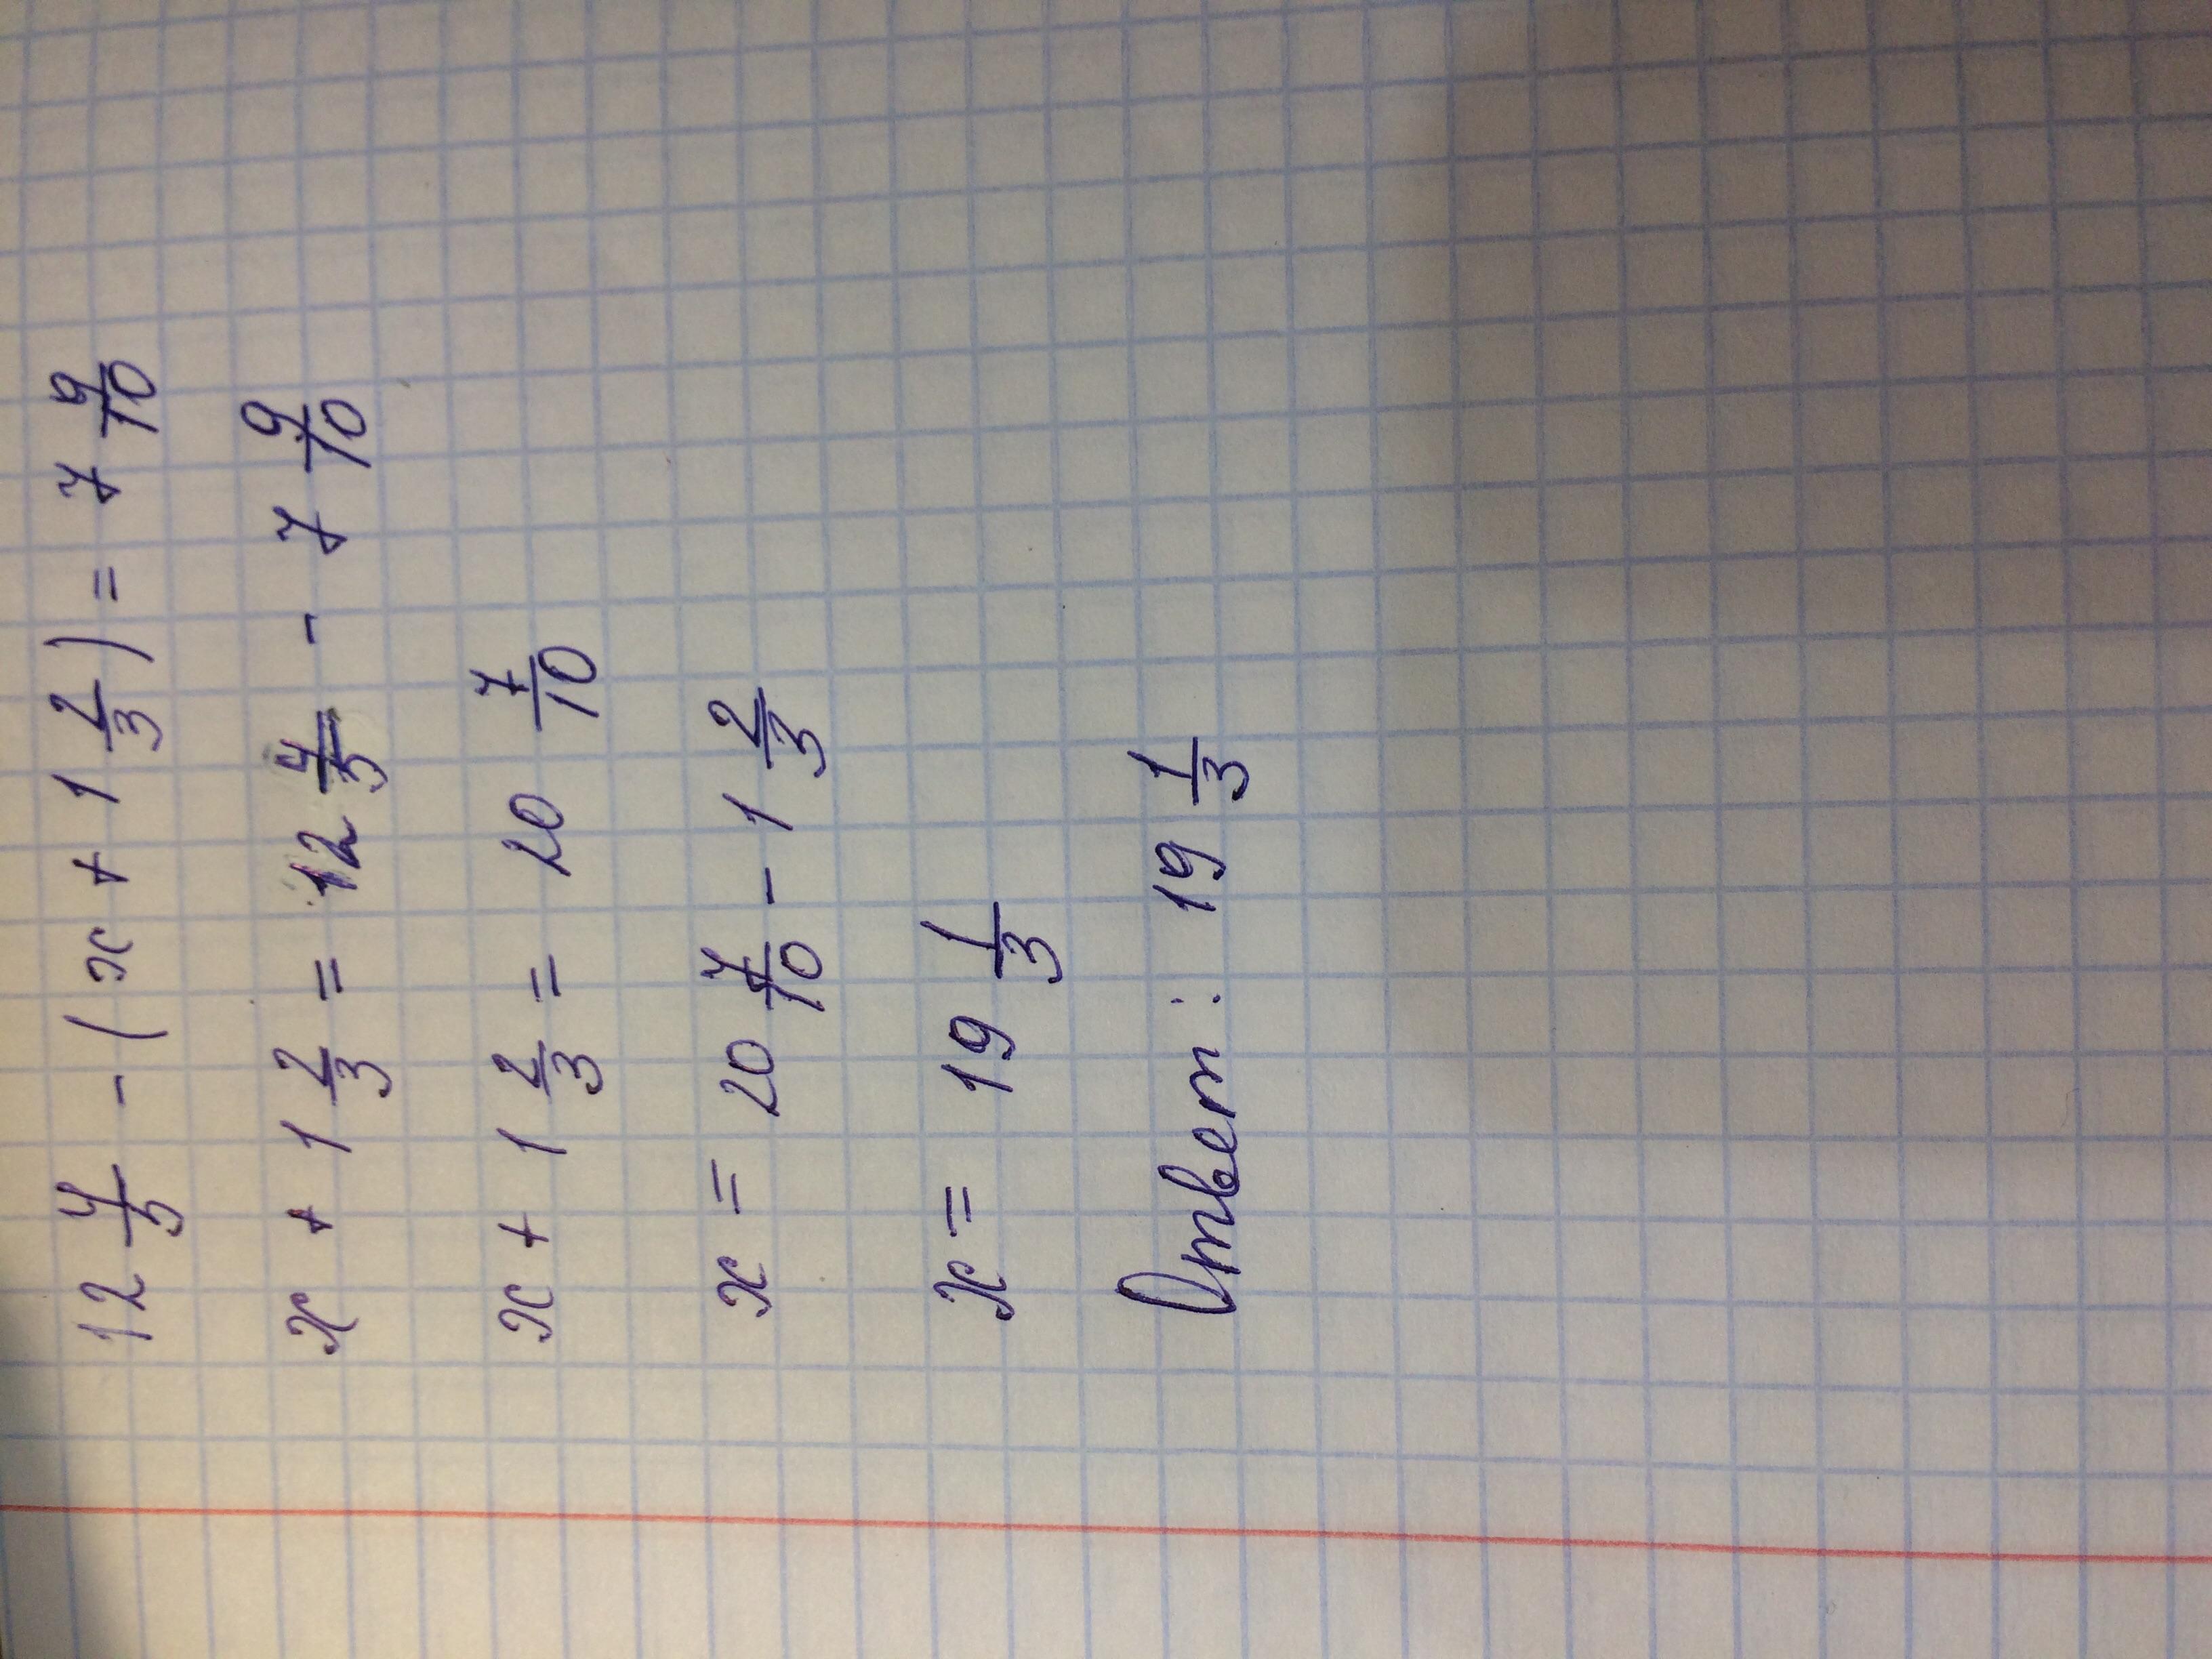 12 4/5 - (x + 1 2/3) = 7 9/10
x + 1 2/3 = 12 4/5 - 7 9/10
x + 1 2/3 = 20 7/10
x = 20 7/10 - 1 2/3
x = 19 1/3
Ответ: 19 1/3